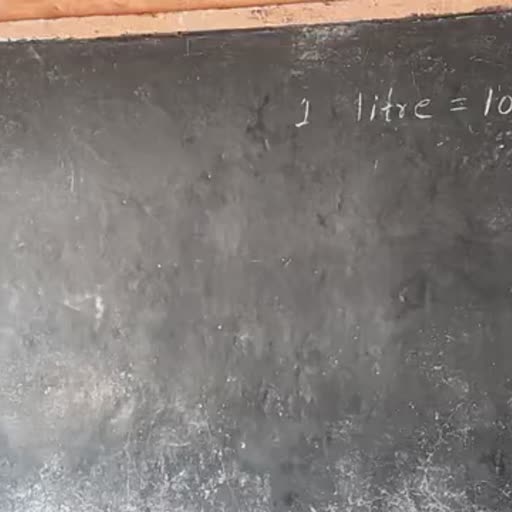 1 litre = 10